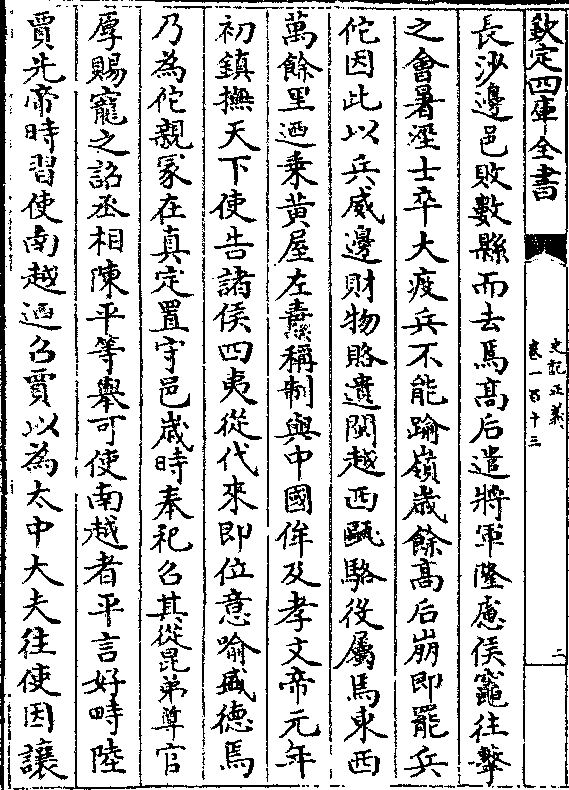 欽定四庫全書
史記正義
卷一百十三
二
長沙邊邑敗數縣而去焉髙后遣將軍隆慮侯竈往擊
之會暑溼士卒大疫兵不能踰嶺歲餘髙后崩即罷兵
佗因此以兵威邊財物賂遺閩越西甌駱役屬焉東西
萬餘里迺乗黄屋左纛稱制與中國侔及孝文帝元年
初鎮撫天下使告諸侯四夷從代來即位意喻盛德焉
乃為佗親冢在真定置守邑歲時奉祀召其從昆弟尊官
厚賜寵之詔丞相陳平等舉可使南越者平言好畤陸
賈先帝時習使南越迺召賈以為太中大夫往使因讓